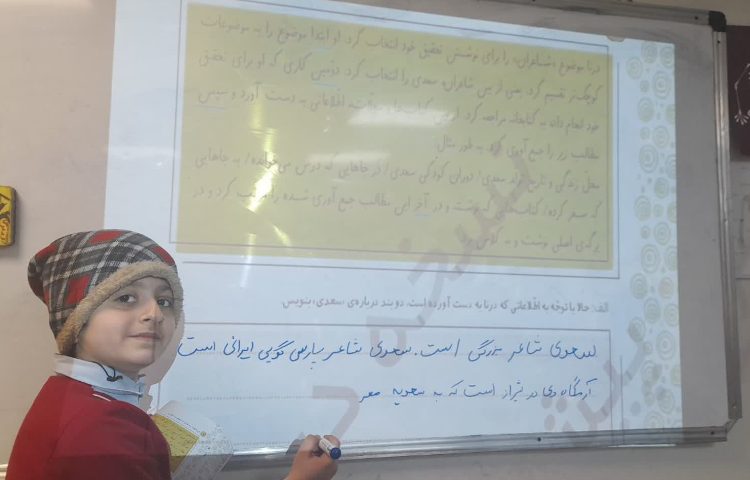 درنا موضوع «شاعران» را برای نوشتن تحقیق خود انتخاب کرد. او ابتدا موضوع را به موضوعات
کوچک‌تر تقسیم کرد. یعنی از بین شاعران، سعدی را انتخاب کرد. دومین کاری که او برای تحقیق
خود انجام داد، به کتابخانه مراجعه کرد. از بین کتاب‌ها، اطلاعاتی به دست آورد و سپس
مطالب زیر را جمع آوری کرد. به طور مثال:
محل زندگی و تاریخ تولد سعدی/ دوران کودکی سعدی/ در جاهایی که درس می‌خوانده/ به جاهایی
که سفر کرده/ کتاب‌هایی که نوشته و در آخر این مطالب جمع آوری شده را کرد و در
برگه‌ی اصلی نوشت و به کلاس
الف: حالا با توجه به اطلاعاتی که درنا به دست آورده است، دو بند درباره‌ی «سعدی» بنویس.
سعدی شاعر بزرگی است. سعدی شاعر پارسی گویی ایرانی است
آرامگاه وی در شیراز است که به سعدیه معر